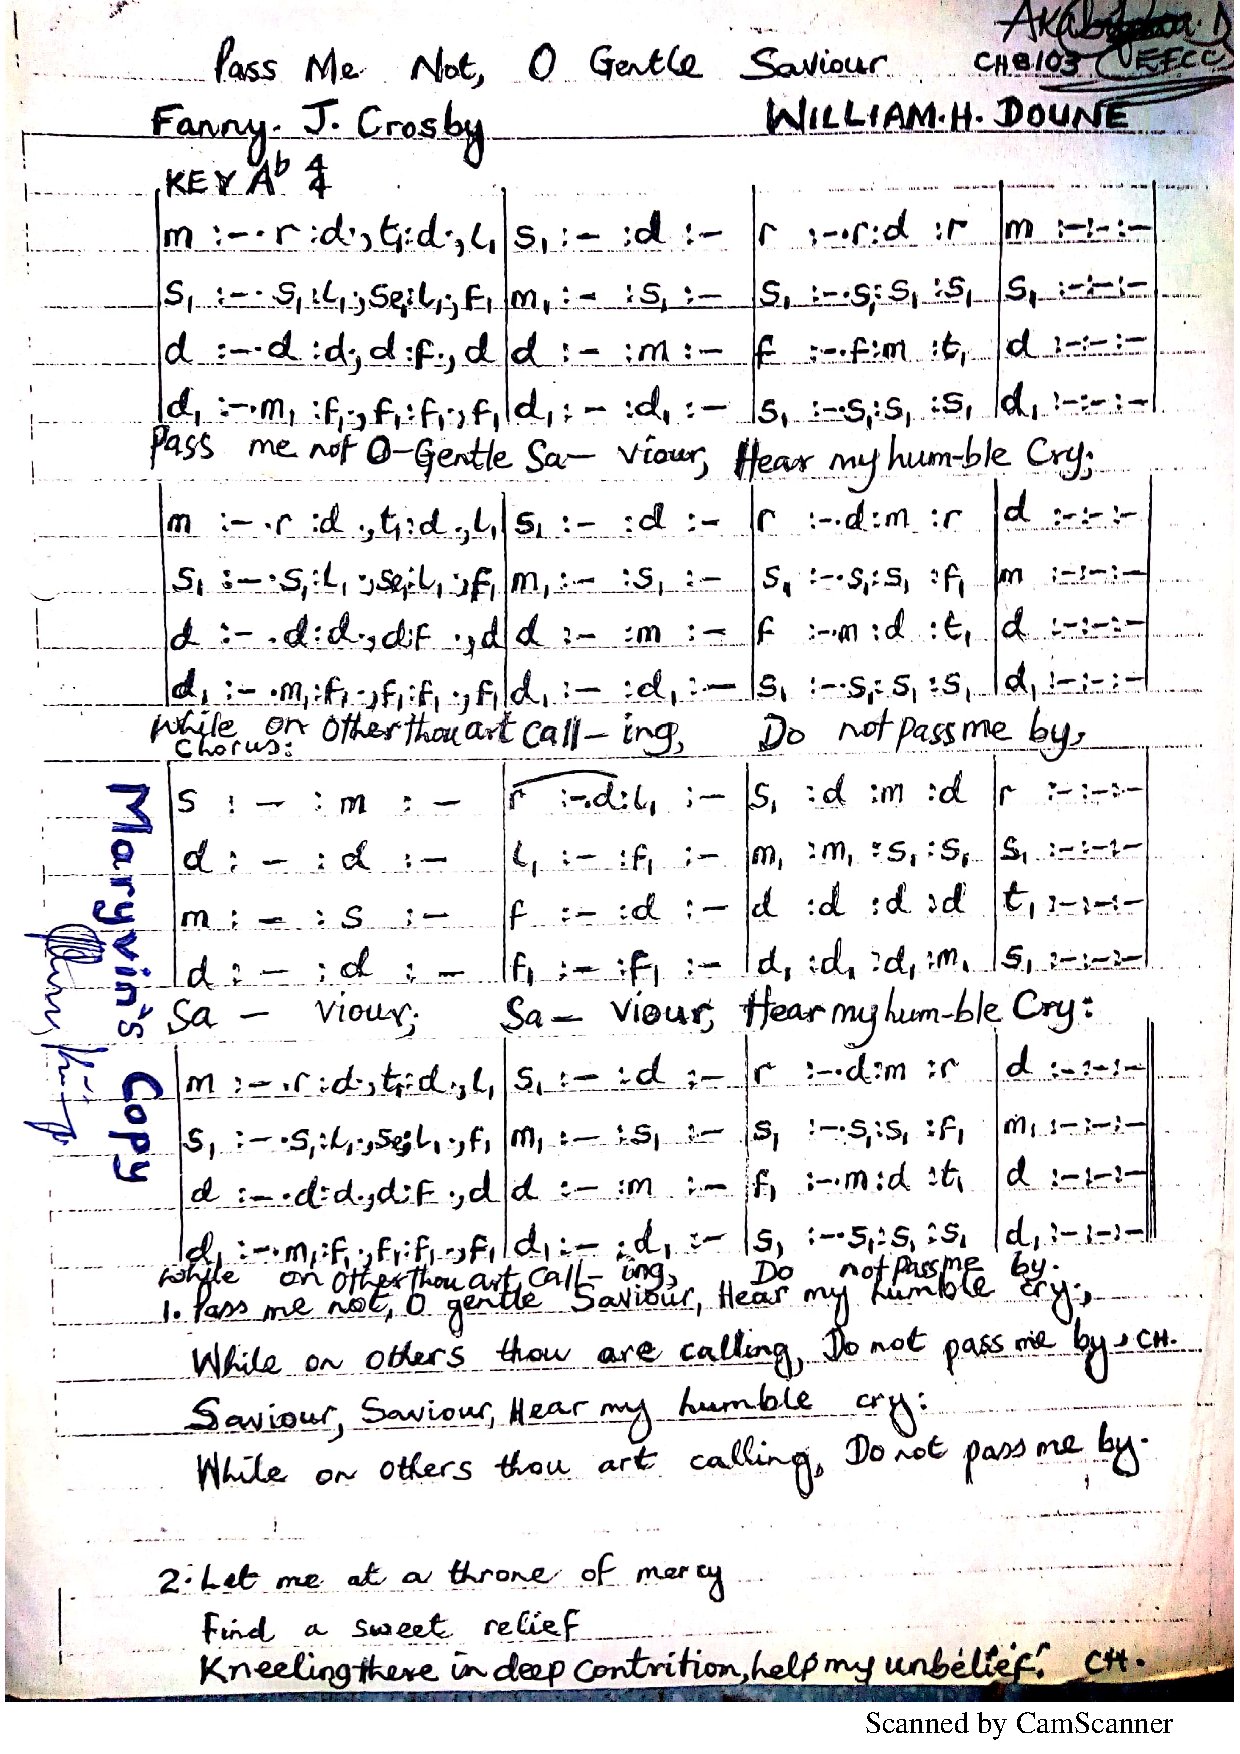 Pass Me Not, O Gentle Saviour
CHB103 EFCC
Fanny. J. Crosby WILLIAM.H. DOUNE
KEY Ab 4/4
m :-.r :d.,t₁:d.,l₁ | s₁ :- :d :- | r :-.r:d :r | m :-:-:-
s₁ :-.s₁:l₁.,se₁:l₁.,f₁ | m₁ :- :s₁ :- | s₁ :-.s₁:s₁ :s₁ | s₁ :-:-:-
d :-.d :d.,d:f.,d | d :- :m :- | f :-.f:m :t₁ | d :-:-:-
d₁ :-.m₁ :f₁.,f₁:f₁.,f₁ | d₁ :- :d₁ :- | s₁ :-.s₁:s₁ :s₁ | d₁ :-:-:-
Pass me not O-Gentle Sa- viour, Hear my hum-ble Cry;
m :-.r :d.,t₁:d.,l₁ | s₁ :- :d :- | r :-.d:m :r | d :-:-:-
s₁ :-.s₁:l₁.,se₁:l₁.,f₁ | m₁ :- :s₁ :- | s₁ :-.s₁:s₁ :f₁ | m :-:-:-
d :-.d:d.,d:f.,d | d :- :m :- | f :-.m :d :t₁ | d :-:-:-
d₁ :-.m₁:f₁.,f₁:f₁.,f₁ | d₁ :- :d₁ :- | s₁ :-.s₁:s₁ :s₁ | d₁ :-:-:-
While on other thou art call- ing, Do not pass me by,
Chorus:
s :- :m :- | r :-.d:l₁ :- | s₁ :d :m :d | r :-:-:-
d :- :d :- | l₁ :- :f₁ :- | m₁ :m₁ :s₁ :s₁ | s₁ :-:-:-
m :- :s :- | f :- :d :- | d :d :d :d | t₁ :-:-:-
d :- :d :- | f₁ :- :f₁ :- | d₁ :d₁ :d₁ :m₁ | s₁ :-:-:-
Sa - viour, Sa- viour, Hear my hum-ble Cry:
m :-.r :d.,t₁:d.,l₁ | s₁ :- :d :- | r :-.d:m :r | d :-:-:-
s₁ :-.s₁:l₁.,se₁:l₁.,f₁ | m₁ :- :s₁ :- | s₁ :-.s₁:s₁ :f₁ | m₁ :-:-:-
d :-.d:d.,d:f.,d | d :- :m :- | f₁ :-.m:d :t₁ | d :-:-:-
d₁ :-.m₁:f₁.,f₁:f₁.,f₁ | d₁ :- :d₁ :- | s₁ :-.s₁:s₁ :s₁ | d₁ :-:-:-
While on other thou art call- ing, Do not pass me by.
1. Pass me not, O gentle Saviour, Hear my humble cry;
While on others thou are calling, Do not pass me by, CH.
Saviour, Saviour, Hear my humble cry:
While on others thou art calling, Do not pass me by.
2. Let me at a throne of mercy
Find a sweet relief
Kneeling there in deep contrition, help my unbelief. CH.
Maryvin's Copy
Scanned by CamScanner